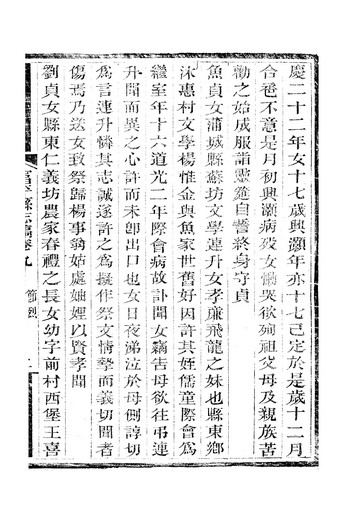 慶二十二年女十七歲興灝年亦十七已定於是歲十二月
合卺不意是月初興灝病歿女慟哭欲殉祖父母及親族苦
勸之始成服詣靈筵自誓終身守貞
魚貞女蒲城縣蘇坊文學連升女孝廉飛龍之妹也縣東鄉
沐惠村文學楊惟金與魚家世舊好因許其姪儒童際會為
繼室年十六道光二年際會病故訃聞女竊告母欲往弔連
升聞而異之心許而未即出口也女日夜涕泣於母側諄切
為言連升憐其志誠遂許之為擬作祭文情摯而義切聞者
傷焉乃送女致祭歸楊事翁姑處妯娌以賢孝聞
劉貞女縣東仁義坊農家春禮之長女幼字前村西堡王喜
卷九
節烈